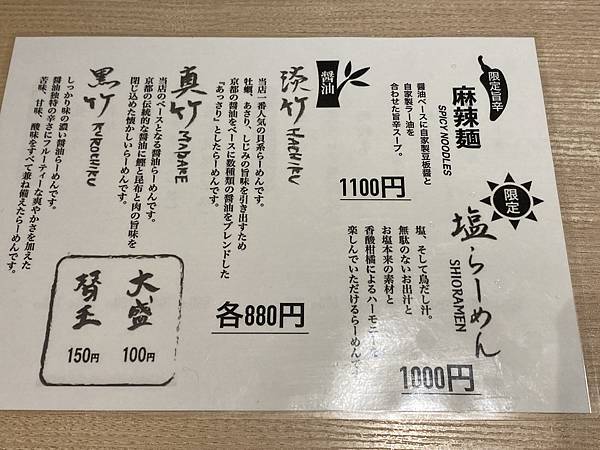 限定旨辛
麻辣麺
SPICY NOODLES
醤油ベースに自家製豆板醤と
自家製ラー油を
合わせた旨辛スープ。
1100円
限定
塩らーめん
SHIORAMEN
塩、そして鳥だし汁。
無駄のないお出汁と
お塩本来の素材と
香酸柑橘によるハーモニーを
楽しんでいただけるらーめんです
1000円
醤油
淡竹 HACHIKU
当店一番人気の貝系らーめんです。
牡蠣、あさり、しじみの旨味を引き出すため
京都の醤油をベースに数種類の醤油をブレンドした
「あっさり」としたらーめんです。
真竹 MADAKE
当店のベースとなる醤油らーめんです。
京都の伝統的な醤油に鰹と昆布と肉の旨味を
閉じ込めた懐かしいらーめんです。
黒竹 KUROCHIKU
しっかり味の濃い醤油らーめんです。
醤油独特の辛さにフルーティーな爽やかさを加えた
苦味、甘味、酸味をすべて兼ね備えたらーめんです。
各880円
大盛
100円
替玉
150円